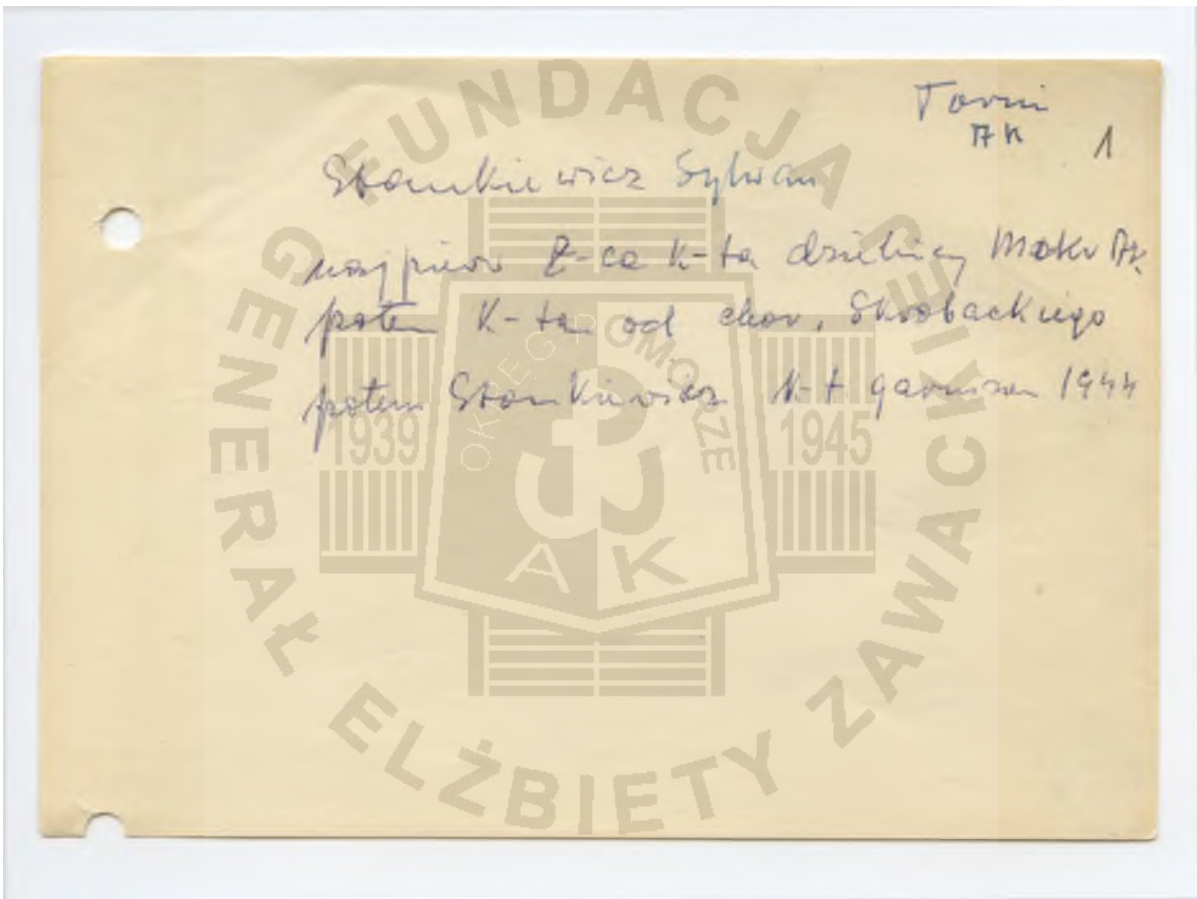 Toruń
AK 1
Stankiewicz Sylwan
najpierw Z-ca K-ta dzielnicy Mokr AK.
potem K-ta od chor. Skrobackiego
potem Stankiewicz K-t garnizon 1944
FUNDACJA
GENERAŁ ELŻBIETY ZAWACKIEJ
OKRĘG POMORZE
1939 1945
AK